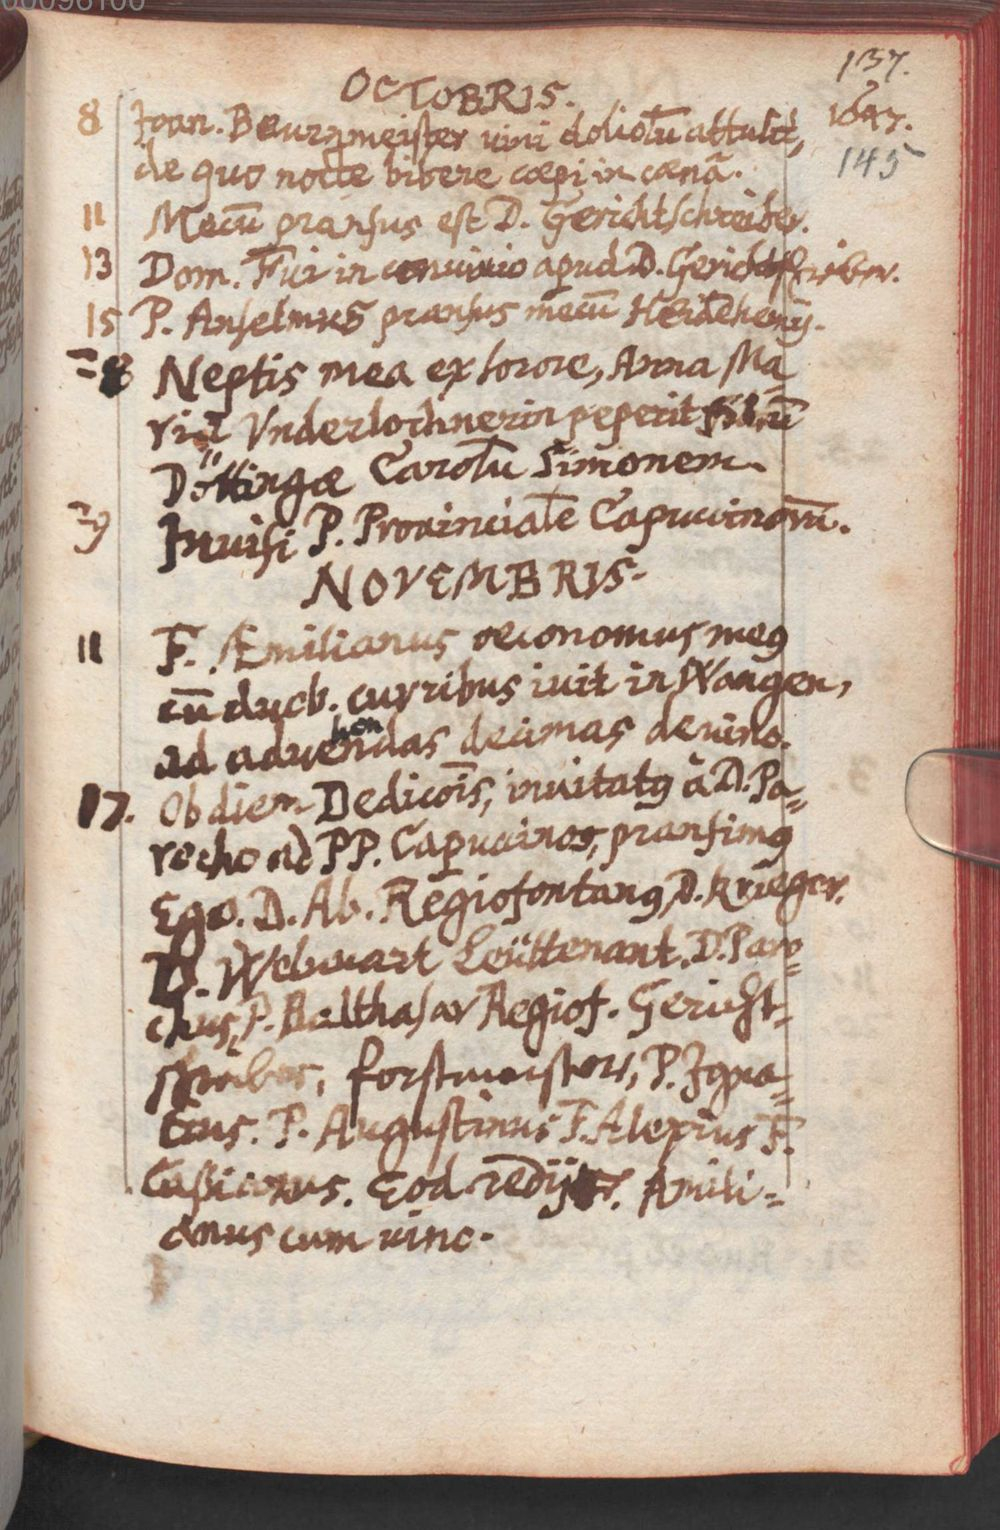 00096100
137.
OCTOBRIS.
1647.
145
8 Joan. Beurgmeister vini doliolũ attulit,
de quo nocte bibere cœpi in cœnâ.
11 Mecũ pransus est D. Gerichtschreiber.
13 Dom. Fui in convivio apud D. Gerichtschriber.
15 P. Anselmus pransus mecũ
28 Neptis mea ex sorore, Anna Ma
ria Vnderlochnerin peperit filiũ
Döttingæ Carolũ Simonem.
29 Invisi P. Provincialẽ Capucinorũ.
NOVEMBRIS.
11 F. Æmilianus œconomus meꝰ
cũ duob. curribus ivit in Wangen,
ad advehendas decimas de vino.
17. Ob diem Dedicõis, invitatꝰ à D. Pa-
rocho ad PP. Capucinos, pransimꝰ
Ego. D. Ab. Regiofontanꝰ, D. Krieger.
D. Leüttenant. D. Paro-
chus, P. Balthasar Regiof. Gericht-
schriber, forstmeister, P. Igna-
tius. P. Augustinus F. Alexius F.
Cassianus. Eod. redijt F. Æmili-
anus cum vino.